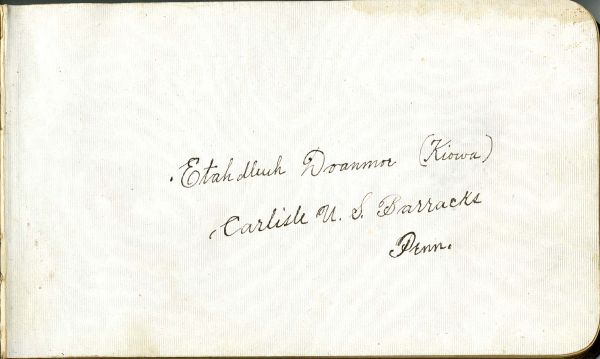 Etahdleuh Doanmoe (Kiowa)
Carlisle U. S. Barracks
Penn.